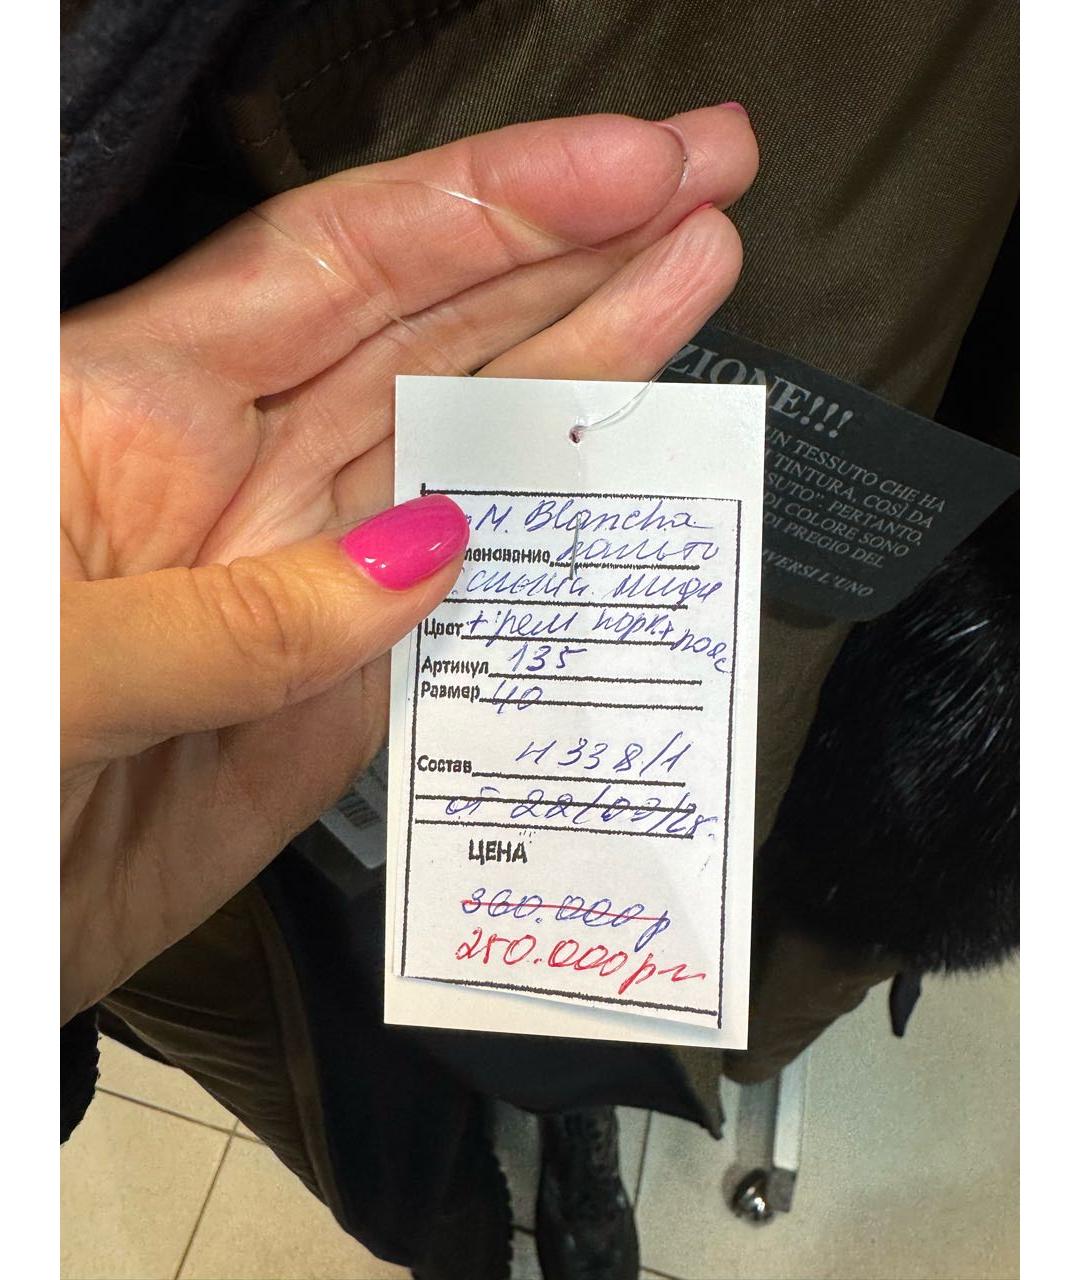 M. Blancha
менование пальто
синий миди
Цвет + рем норк + пояс
Артикул 135
Размер 40
Состав Н 338/1
от 22/03/25.
ЦЕНА
360.000р
250.000р
ZIONE!!!
UN TESSUTO CHE HA
TINTURA, COSÌ DA
SUTO". PERTANTO,
DI COLORE SONO
DI PREGIO DEL
VERSI L'UNO